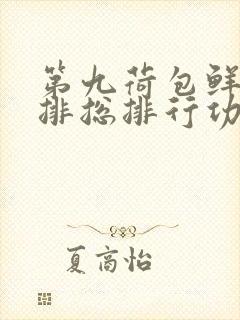 第九荷包鲜
排总排行功
夏高怡